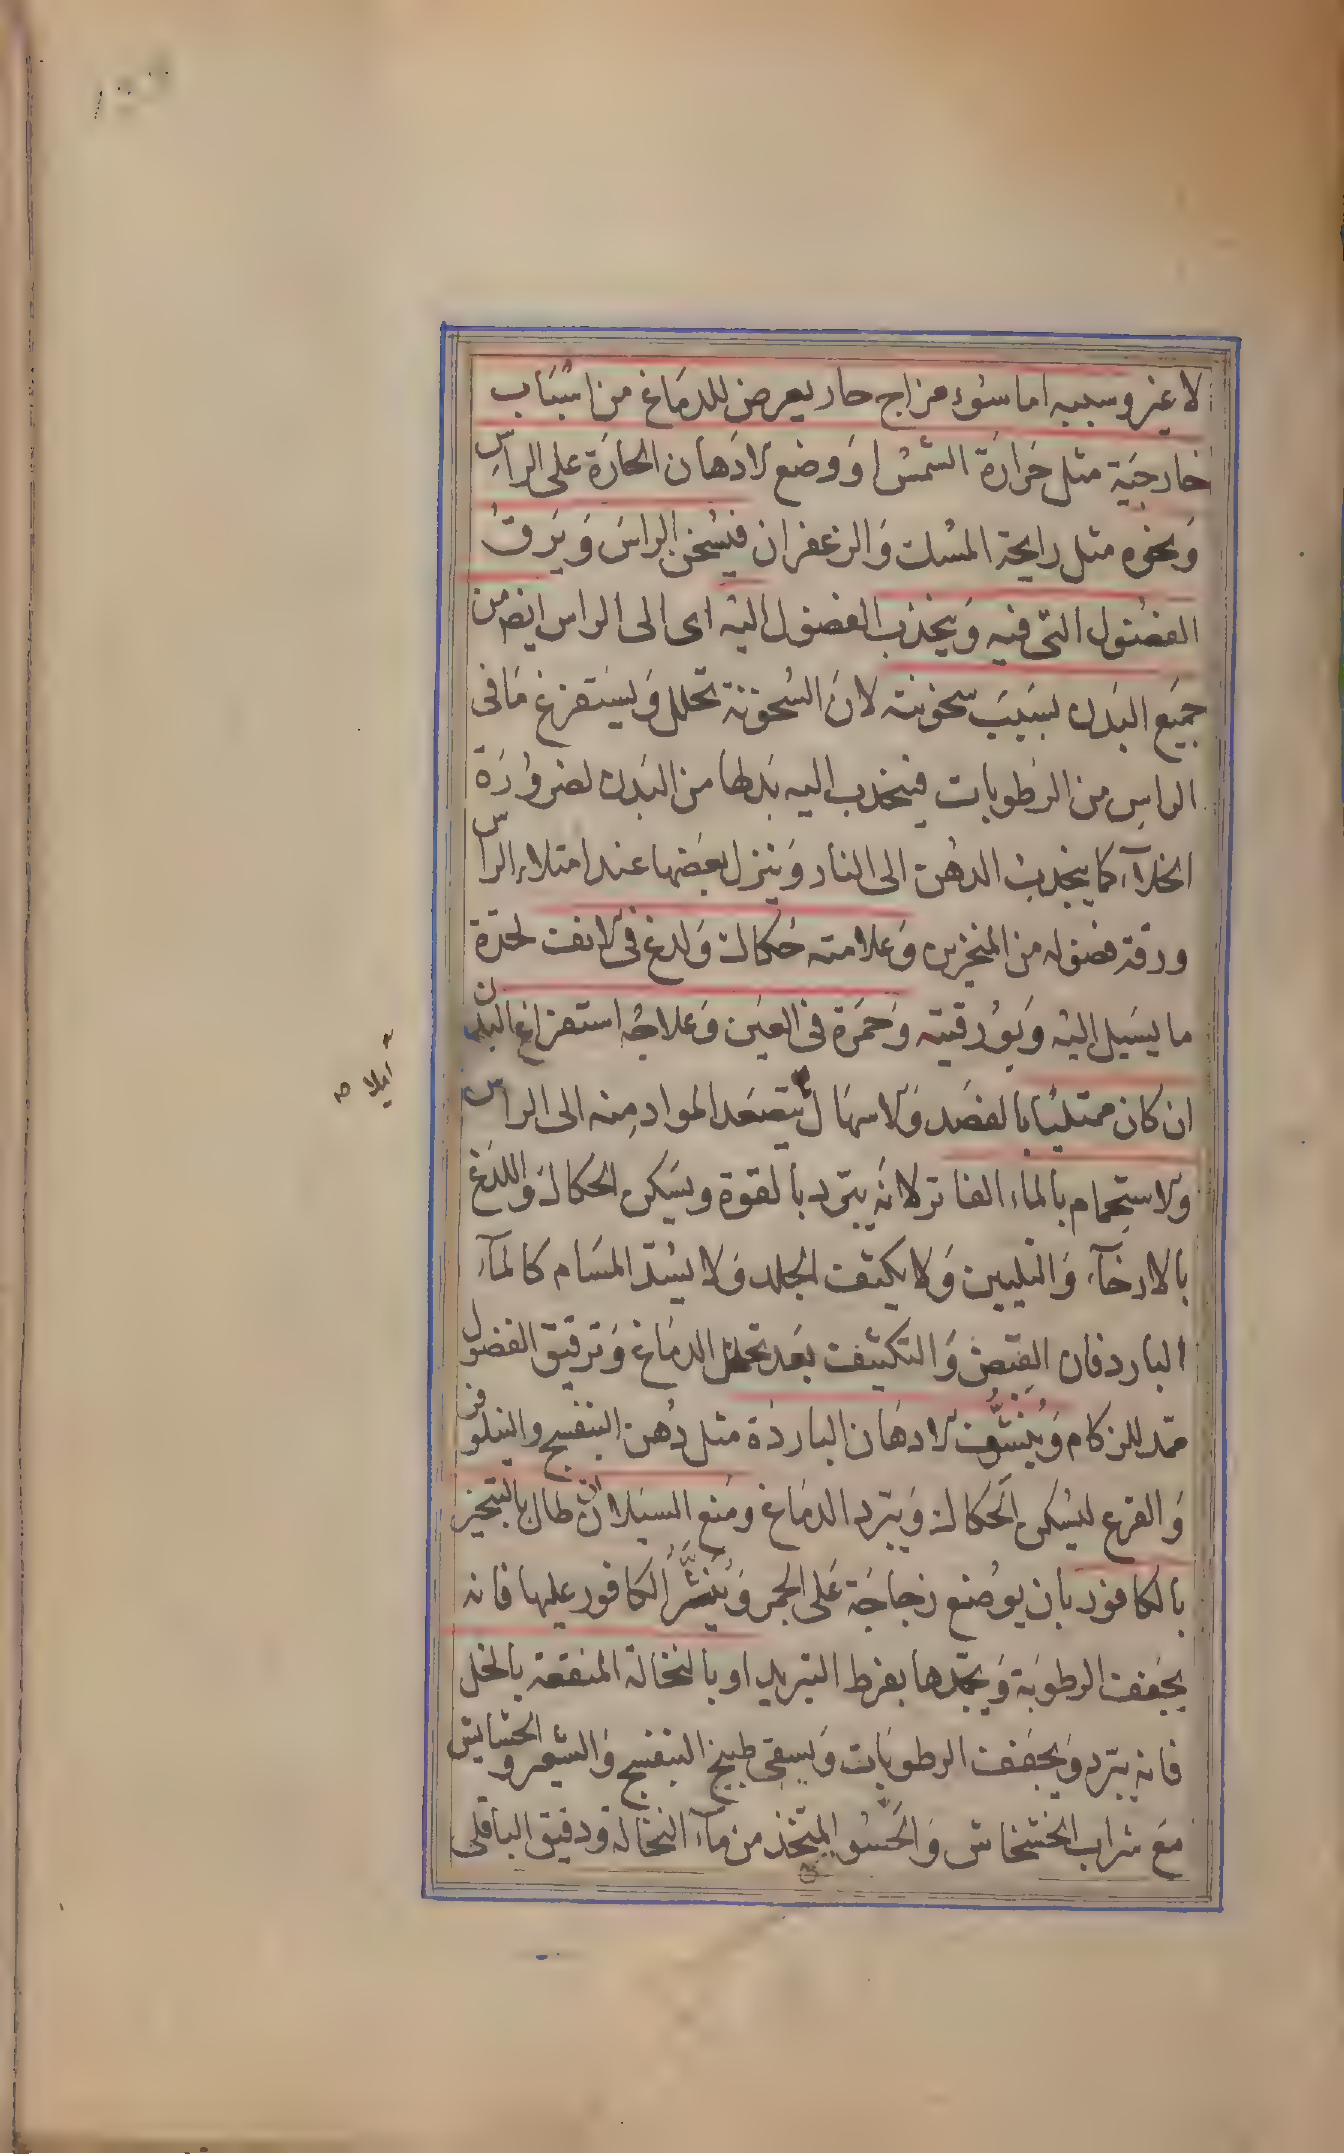 لا غير وسببه اما سوء مزاج حار يعرض للدماغ من اسباب
خارجية مثل حرارة الشمس او وضع الادهان الحارة على الراس
ونحوه مثل رايحة المسك والزعفران فيسخن الراس ويرق
الفضول التى فيه وينجذب الفضول اليه اى الى الراس ايضا من
جميع البدن بسبب سخونته لان السخونة تحلل ويستفرغ ما فى
الراس من الرطوبات فينجذب اليه بدلها من البدن لضرورة
الخلآء كما ينجذب الدهن الى النار وينزل بعضها عند امتلاء الراس
ورقة فضوله من المنخرين وعلامته حكاكة ولدغ فى الانف لحدة
ما يسيل اليه وبورقيته وحمرة فى العين وعلاجه استفراغ البدن
ان كان ممتليا بالفصد والاسهال يتصعد المواد منه الى الراس
لئلا صح
والاستحمام بالماء الفاتر لانه يبرد بالقوة ويسكن الحكاكة واللدغ
بالارخآء والتليين ولا يكثف الجلد ولا يسد المسام كالمآء
البارد فان القبض والتكثيف بعد تحلل الدماغ وترقيق الفضول
ممد للزكام وينشق الادهان الباردة مثل دهن البنفسج والنيلوفر
والقرع ليسكن الحكاكة ويبرد الدماغ ومنع السيلان ان طال بالتبخير
بالكافور بان يوضع زجاجة على الجمر وينثر الكافور عليها فانه
يجفف الرطوبة ويجمدها بفرط التبريد او بالنخالة المنقعة بالخل
فانه يبرد ويجفف الرطوبات ويسقى طبيخ البنفسج والشعير والخشخاش
مع شراب الخشخاش والحسو المتخذ من مآء النخالة ودقيق الباقلى